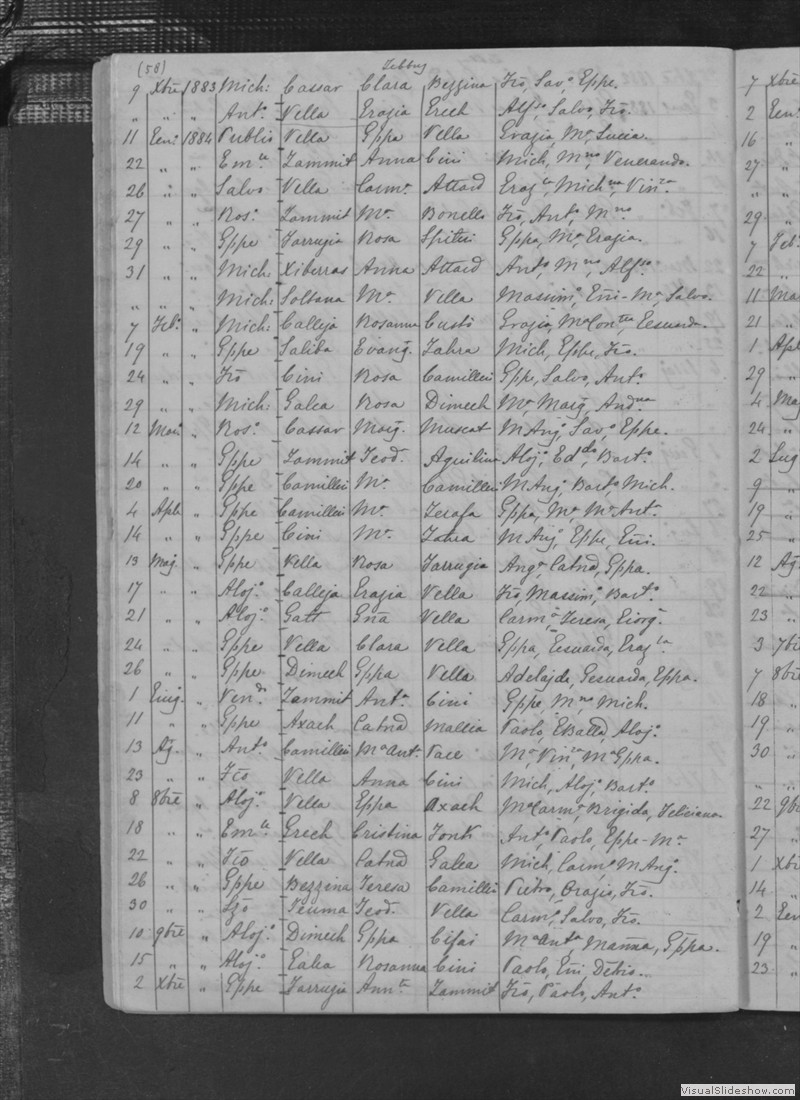 (58) Zebbug
9 Xbre 1883 Mich: Cassar Clara Bezzina Fco, Sav.o Eppe.
" " " Ant.o Vella Grazia Grech Alfso, Salvo, Fco.
11 Gen.o 1884 Publio Vella Gppa Vella Grazia, Ma, Lucia.
22 " " Em.le Zammit Anna Cini Mich, Mno, Venerando.
26 " " Salvo Vella Carm.a Attard
27 " " Ros.o Zammit Ma Bonello Fco, Ant.o, Mno
29 " " Gppe Farrugia Rosa Spiteri Gppa, Ma, Grazia.
31 " " Mich: Xiberras Anna Attard Ant.o, Mno, Alfso.
" " " Mich: Soltana Ma Vella Massim.o, Salvo.
7 Feb.o " Mich: Calleja Rosanna Custò Grazia,
19 " " Gppe Saliba Evang. Zahra Mich, Gppe, Fco.
24 " " Fco Cini Rosa Camilleri Gppe, Salvo, Ant.o
29 " " Mich: Galea Rosa Dimech Ma, Marg, Andna
12 Mar. " Ros.o Cassar Marg. Muscat M Ang, Sav.o, Gppe.
14 " " Gppe Zammit Teod. Aquilina Aloj, Eddo, Bart.o
20 " " Gppe Camilleri Ma Camilleri M Ang, Bart.o, Mich.
4 Aple " Gppe Camilleri Ma Zerafa Gppa, Ma, Ma Ant.a
14 " " Gppe Cini Ma Zahra M Ang, Gppe,
13 Mag. " Gppe Vella Rosa Farrugia Ang.a, Catnd, Gppa.
17 " " Aloj.o Calleja Grazia Vella Fco, Massim.o, Bart.o
21 " " Aloj.o Gatt Gna Vella Carm.a, Teresa, Giorg.
24 " " Gppe Vella Clara Vella Gppa, Gesuarda, Graz.la
26 " " Gppe Dimech Gppa Vella Adelajde, Gesuarda, Gppa.
1 Giug. " Ven.do Zammit Ant.a Cini Gppe, Mno, Mich.
11 " " Gppe Axach Catnd Mallia Paolo, Aloj.o
13 Ag. " Ant.o Camilleri Ma Ant.a Pace Ma, Ma Gppa.
23 " " Fco Vella Anna Cini Mich, Aloj, Bart.o
8 8bre " Aloj.o Vella Gppa Axach Ma Carm.a, Brigida, Feliciana.
18 " " Em.le Grech Cristina Fonk Ant.o, Paolo, Gppe-Ma
22 " " Fco Vella Catnd Galea Mich, Carm.o, M Ang.o
26 " " Gppe Bezzina Teresa Camilleri Pietro, Orazio, Fco.
30 " " Teuma Teod. Vella Carm.o, Salvo, Fco.
10 9bre " Aloj.o Dimech Gppa Cifai Ma Ant.a Gppa.
15 " " Aloj.o Rosanna Cini Paolo,
2 Xbre " Gppe Farrugia Ann.ta Zammit Fco, Paolo, Ant.o
7 Xbre
2 Gen.o
16
27
29
7 Feb.o
22
11 Ma
21
1 Apl
29
4 Mag
24
2 Lug
9
19
25
12 Ag
22
23
3 7bre
7 8bre
18
19
30
22 9bre
27
1 Xbre
14
2 Gen
19
23
VisualSlideshow.com